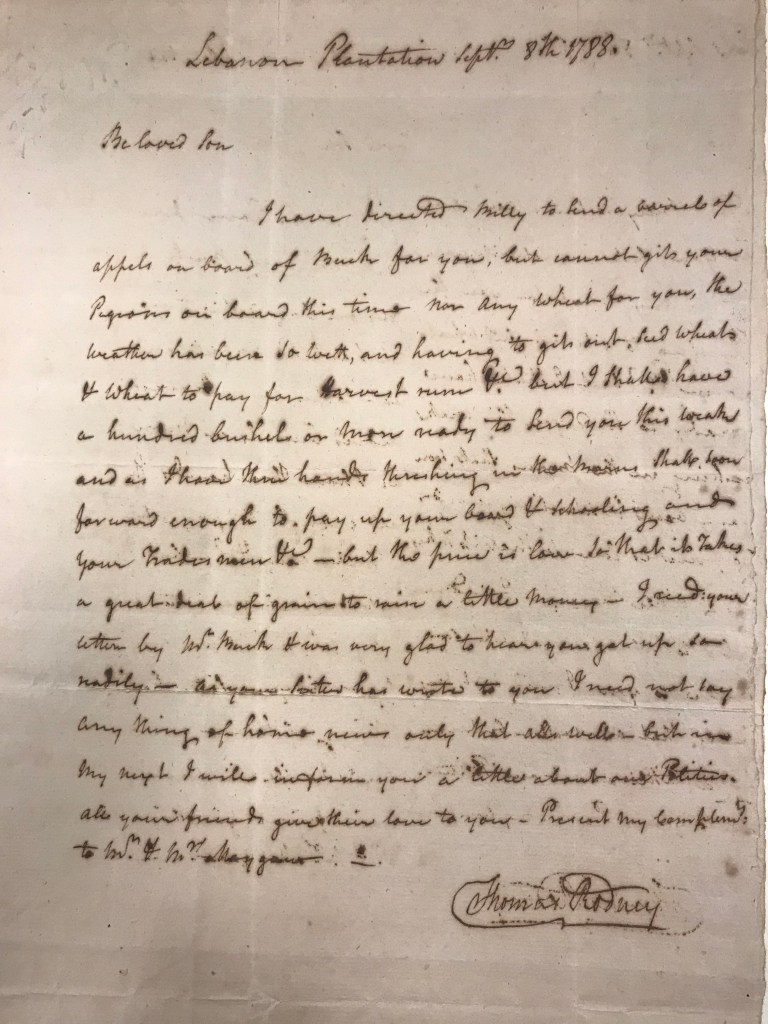 Lebanon Plantation Septr. 8th 1788.
Beloved Son
I have directed Milly to Send a barrel of
appels on board of Buck for you, but cannot git your
Pigeons on board this time nor any wheat for you, the
weather has been so wett, and having to git out Sed wheat
& wheat to pay for Harvest rum &c. but I shall have
a hundred bushels or more ready to Send you this weak
and as I have three hands threshing in the Barns shall soon
forward enough to pay up your board & schooling and
your Tradesmen &c. – but the price is low So that it Takes
a great deal of grain to raise a little money – I recd. your
letter by Mr. Buck & was very glad to hear you got up so
readily – as your Sister has wrote to you I need not say
any thing of home news only that alls well – but in
my next I will inform you a little about our Politics.
all your friends give their love to you – Present my Complemts.
to Mr. & Mrs.
Thomas Rodney